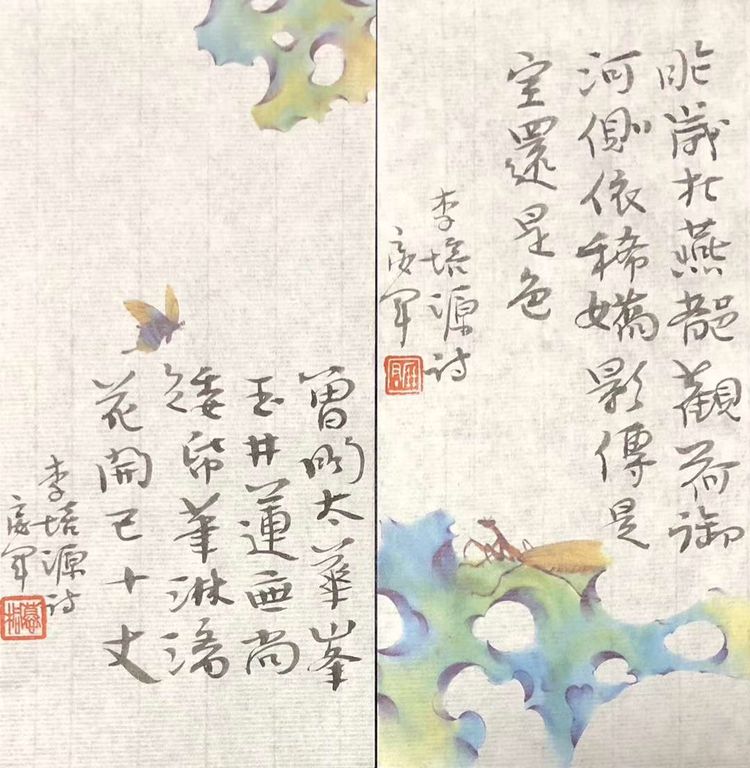 昨歲在燕都觀荷御
河側依稀嬌影傳是
空還是色
李培源詩
彦軍
曾聞太華峯
玉井蓮無尚
矮紙筆淋漓
花開已十丈
李培源詩
彦軍